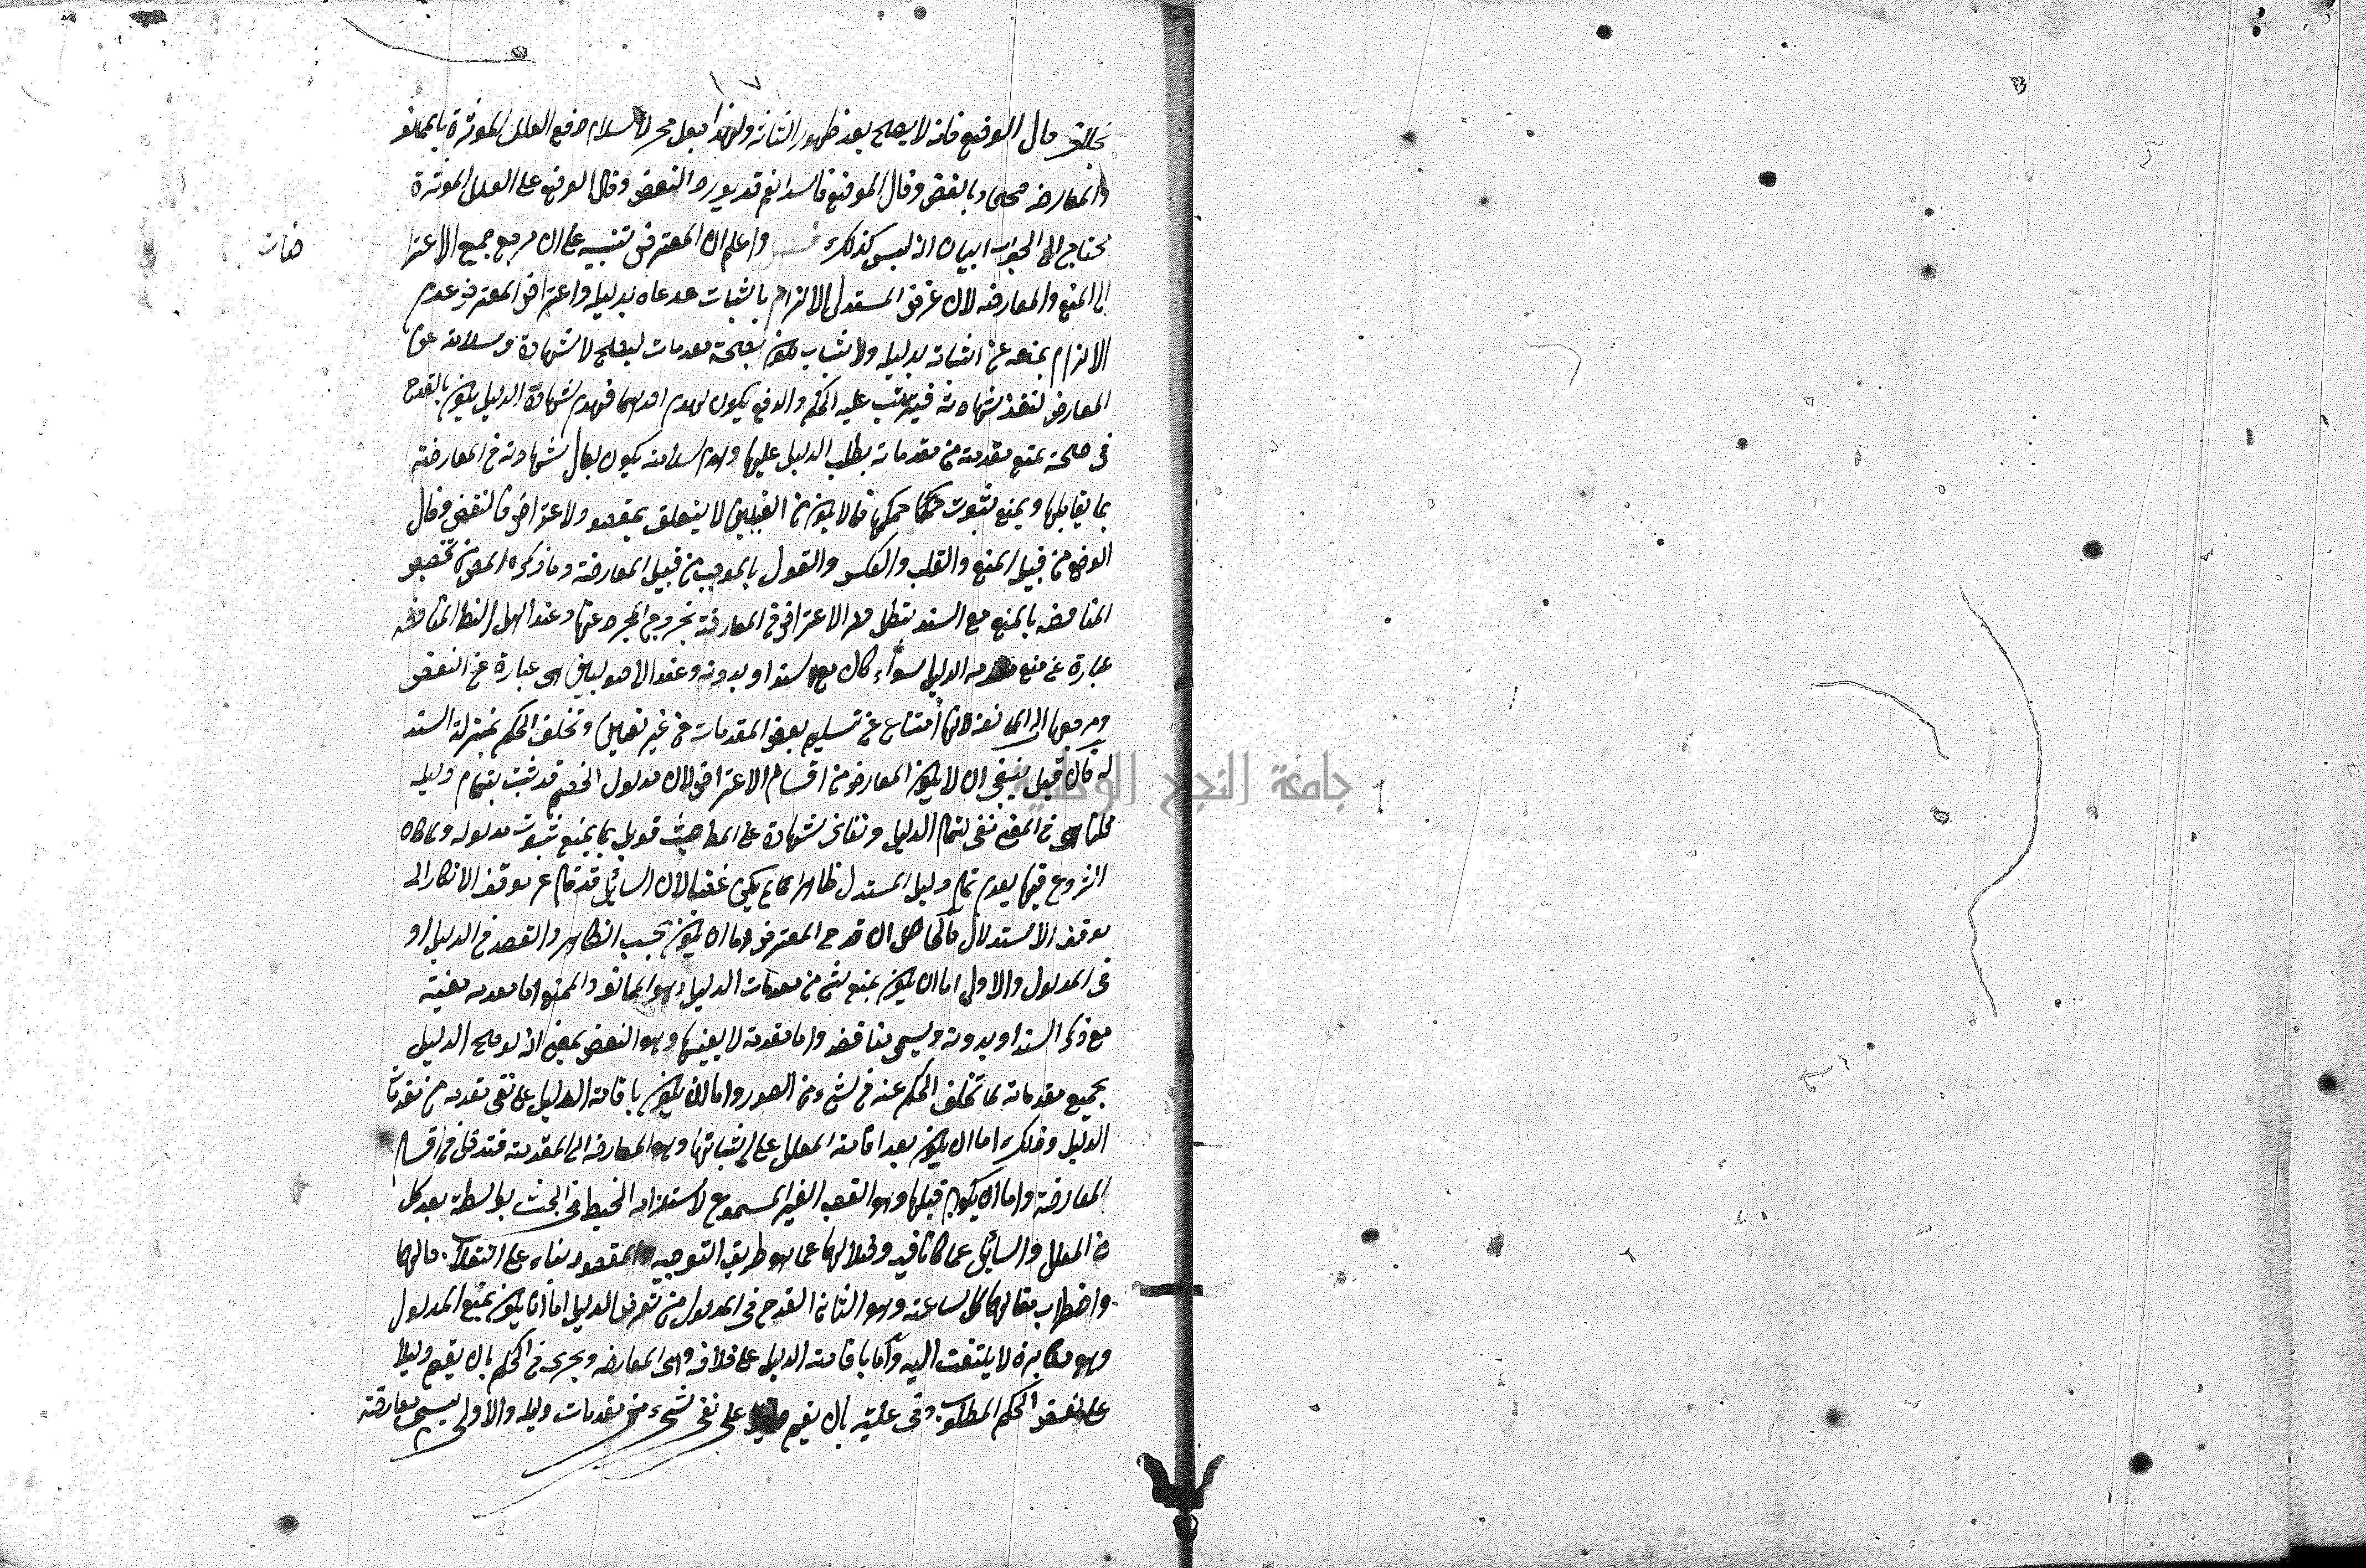 ١٧
بخلاف فساد الوضع فانه لا يصح بعد ظهور التأثير ولهذا يقبل فخر الاسلام دفع العلل المؤثرة بالممانعة
والمعارضة صحيح وبالنقض وفساد الوضع فاسد نعم قد يورد النقض وفساد الوضع على العلل المؤثرة
يحتاج الى الجواب ببيان انه ليس كذلك واعلم ان المعترض تنبيه على ان مرجع جميع الاعترا
ضات
الى المنع والمعارضة لان غرض المستدل الالزام باثبات مدعاه بدليله واعتراض المعترض عدم
الالزام بمنعه عن اثباته بدليله والاثبات يكون بصحة مقدماته ليصلح للشهادة وسلامته عن
المعارض لتنفذ شهادته فيترتب عليه الحكم والدفع يكون بهدم احدهما فهدم شهادة الدليل يكون بالقدح
في صحته بمنع مقدمة من مقدماته بطلب الدليل عليها وهدم سلامته يكون بفساد شهادته في المعارضة
بما يقابلها ويمنع ثبوت حكمها فما لا يكون من القبيلين لا يتعلق بمقصود الاعتراض فالنقض وفساد
الوضع من قبيل المنع والقلب والعكس والقول بالموجب من قبيل المعارضة وما ذكره المص من تخصيص
المناقضة بالمنع مع السند يبطل حصر الاعتراض في المعارضة بخروج المجرد عنها وعند اهل النظر المناقضة
عبارة عن منع مقدمة الدليل سواء كان مع السند او بدونه وعند الاصوليين هي عبارة عن النقض
ومرجعها الى الممانعة لانها امتناع عن تسليم بعض المقدمات من غير تعيين وتخلف الحكم بمنزلة السند
له فان قيل ينبغي ان لا يكون المعارضة من اقسام الاعتراض لان مدلول الخصم قد ثبت بتمام دليله
قلنا هي في المعنى نفي لتمام الدليل ونفاذ شهادة على المط حيث قوبل بما يمنع ثبوت مدلوله ولما كان
الشروع فيها بعد تمام دليل المستدل ظاهرا لم يكن غصبا لان السائل قد قام عن موقف الانكار الى
موقف الاستدلال فالحاصل ان قدح المعترض اما ان يكون بحسب الظاهر والقصد في الدليل او
في المدلول والاول اما ان يكون بمنع شئ من مقدمات الدليل وهو الممانعة والممنوع اما مقدمة معينة
مع ذكر السند او بدونه ويسمى مناقضة واما مقدمة لا بعينها وهو النقض بمعنى انه لو صح الدليل
بجميع مقدماته لما تخلف الحكم عنه في شئ من الصور واما ان يكون باقامة الدليل على نفي مقدمة من مقدمات
الدليل وذلك اما ان يكون بعد اقامة المعلل على اثباتها وهو المعارضة الى المقدمة فتدخل في اقسام
المعارضة واما ان يكون قبلها وهو الغصب الغير المسموع لاستلزامه الخبط في البحث بواسطة بعد كل
من المعلل والسائل عما كانا فيه وضلالهما عما هو طريق التوجيه والمقصود بناء على انتقال حالهما
واضطراب مقالهما كل ساعة وهو الثاني القدح في المدلول من تعرض الدليل اما ان يكون بمنع المدلول
وهو مكابرة لا يلتفت اليه واما باقامة الدليل على خلافه وهي المعارضة ويجري في الحكم بان يقيم دليلا
على نقيض الحكم المطلوب وفي علته بان يقيم دليلا على نفي شئ من مقدمات دليله والاولى يسمى معارضة
جامعة النجاح الوطنية